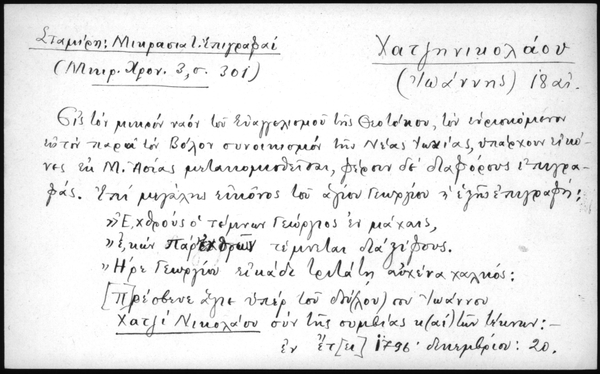 Σταμέρη: Μικρασιατ. Ἐπιγραφαί
(Μικρ. Χρον. 3, σ. 301)
Χατζηνικολάου
(Ἰωάννης) 18 αἰ.
Εἰς τὸν μικρὸν ναὸν τοῦ Εὐαγγελισμοῦ τῆς Θεοτόκου, τὸν εὑρισκόμενον
εἰς τὸν παρὰ τὸν Βόλον συνοικισμὸν τῆς Νέας Ἰωνίας, ὑπάρχουν εἰκό-
νες ἐκ Μ. Ἀσίας μετακομισθεῖσαι, φέρουν δὲ διαφόρους ἐπιγρα-
φάς. Ἐπὶ μεγάλης εἰκόνος τοῦ ἁγίου Γεωργίου ἡ ἑξῆς ἐπιγραφή:
»Ἐχθροὺς ὁ τέμνων Γεώργιος ἐν μάχαις,
»Ἑκὼν παρ' ἐχθρῶν τέμνεται διὰ ξίφους.
»Ἦρε Γεωργίου εἰκάδι τριτάτῃ αὐχένα χαλκός:
[Π]ρέσβευε ἅγιε ὑπὲρ τοῦ δού(λου) σου Ἰωάννου
Χατζὶ Νικολάου σὺν τῆς συμβίας κ(αὶ) τῶν τέκνων:–
ἐν ἔτ[ει] 1796 δεκεμβρίου: 20.